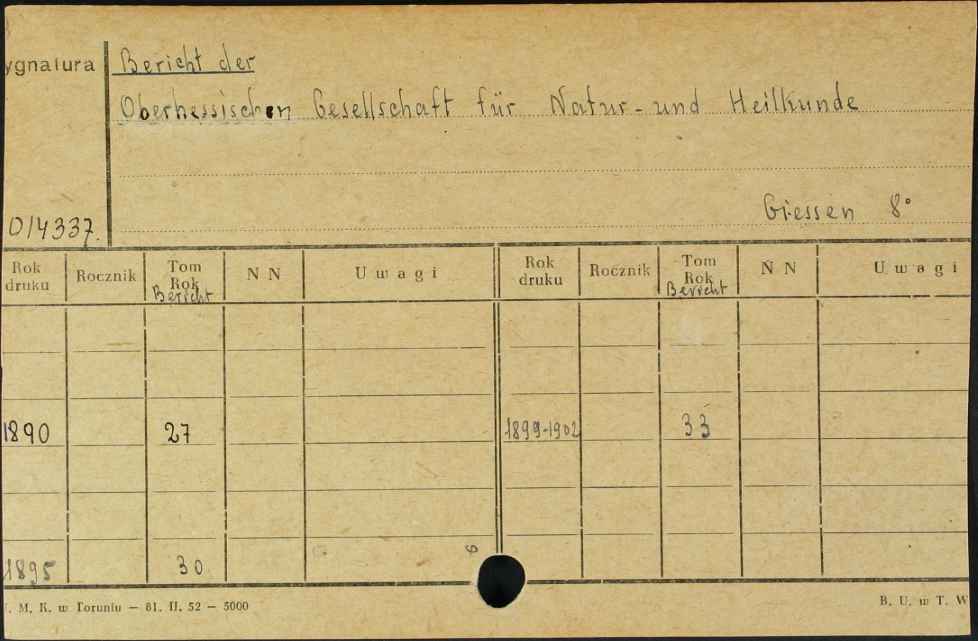 ygnatura Bericht der
Oberhessischen Gesellschaft für Natur- und Heilkunde
Giessen 8°
014337.
Rok druku Rocznik Tom Rok Bericht N N Uwagi Rok druku Rocznik Tom Rok Bericht N N Uwagi
1890 27 1899-1902 33
1895 30
6
. M. K. w Toruniu — 81. II. 52 — 5000 B. U. w T. W